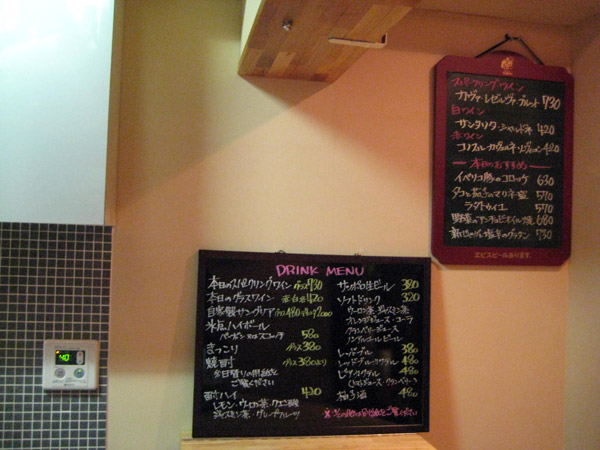 スパークリングワイン
カヴァ・レゼルヴァ ブルット 730
白ワイン
サンタリタ・シャルドネ 420
赤ワイン
コノスル・カヴェルネ・ソーヴィニヨン 420
本日のおすすめ
イベリコ豚のコロッケ 630
タコと のマリネ 570
ラタトゥイユ 570
野菜のアンチョビオイル焼 680
のグラタン 730
ヱビスビールあります。
DRINK MENU
本日のスパークリングワイン グラス730
本日のグラスワイン 赤・白 各420
自家製サングリア グラス480
氷点ハイボール
580
きっこり グラス380
焼酎 グラス380より
今日替りの用紙を
ご覧ください
酎ハイ 420
レモン・ウーロン茶・クエン酸
ジャスミン茶・グレープフルーツ
サッポロ生ビール 380
ソフトドリンク 320
ウーロン茶・ジャスミン茶
オレンジジュース・コーラ
クランベリージュース
ノンアルコールビール
レッドブル 380
レッドブル・ウォッカ 480
480
梅酒 480
※その他は別紙をご覧ください
40